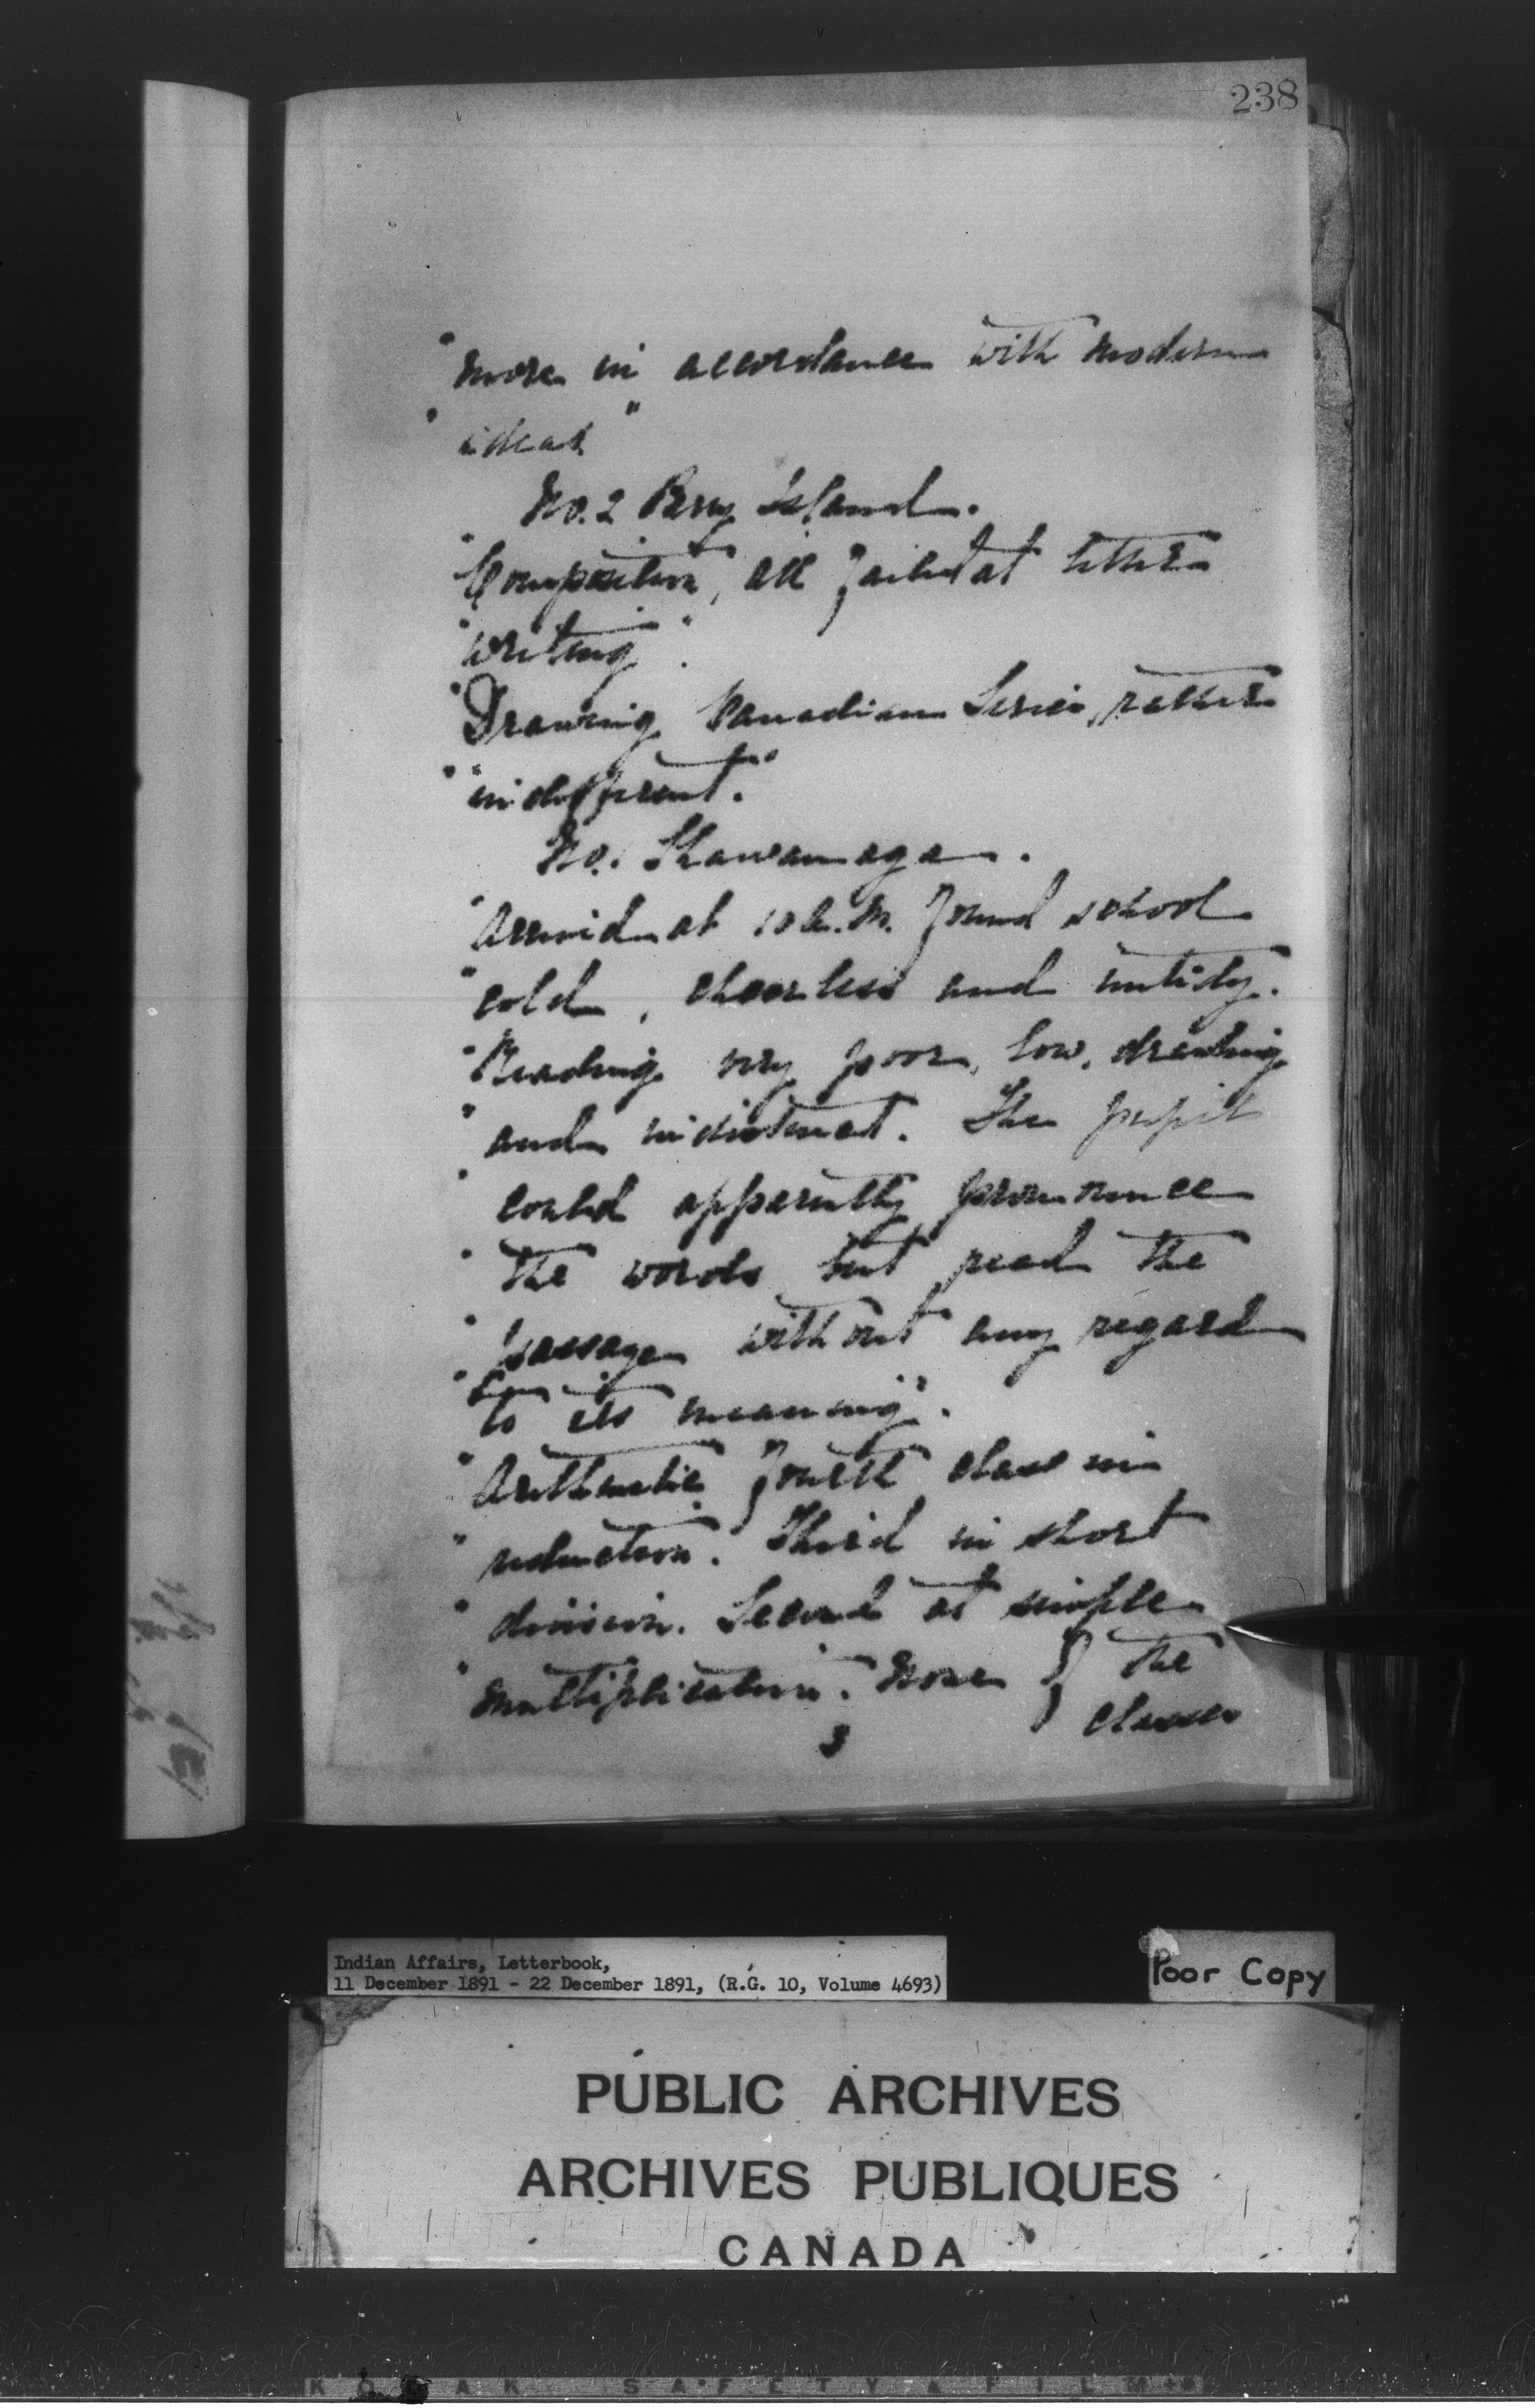 238
"more in accordance with modern
"ideas"
No. 2 Parry Island.
"Composition, all failed at letter
"writing".
"Drawing Canadian Series, rather
"indifferent."
No. 1 Shawanaga.
"Arrived at 10 A.M. found school
"cold, cheerless and untidy.
"Reading very poor, low, drawling
"and indistinct. The pupils
"could apparently pronounce
"the words but read the
"passage without any regard
"to its meaning".
"Arithmetic Fourth class in
"reduction. Third in short
"division. Second at simple
"multiplication. None of the
classes
3
Indian Affairs, Letterbook,
11 December 1891 - 22 December 1891, (R.G. 10, Volume 4693)
Poor Copy
PUBLIC ARCHIVES
ARCHIVES PUBLIQUES
CANADA
KODAK SAFETY FILM